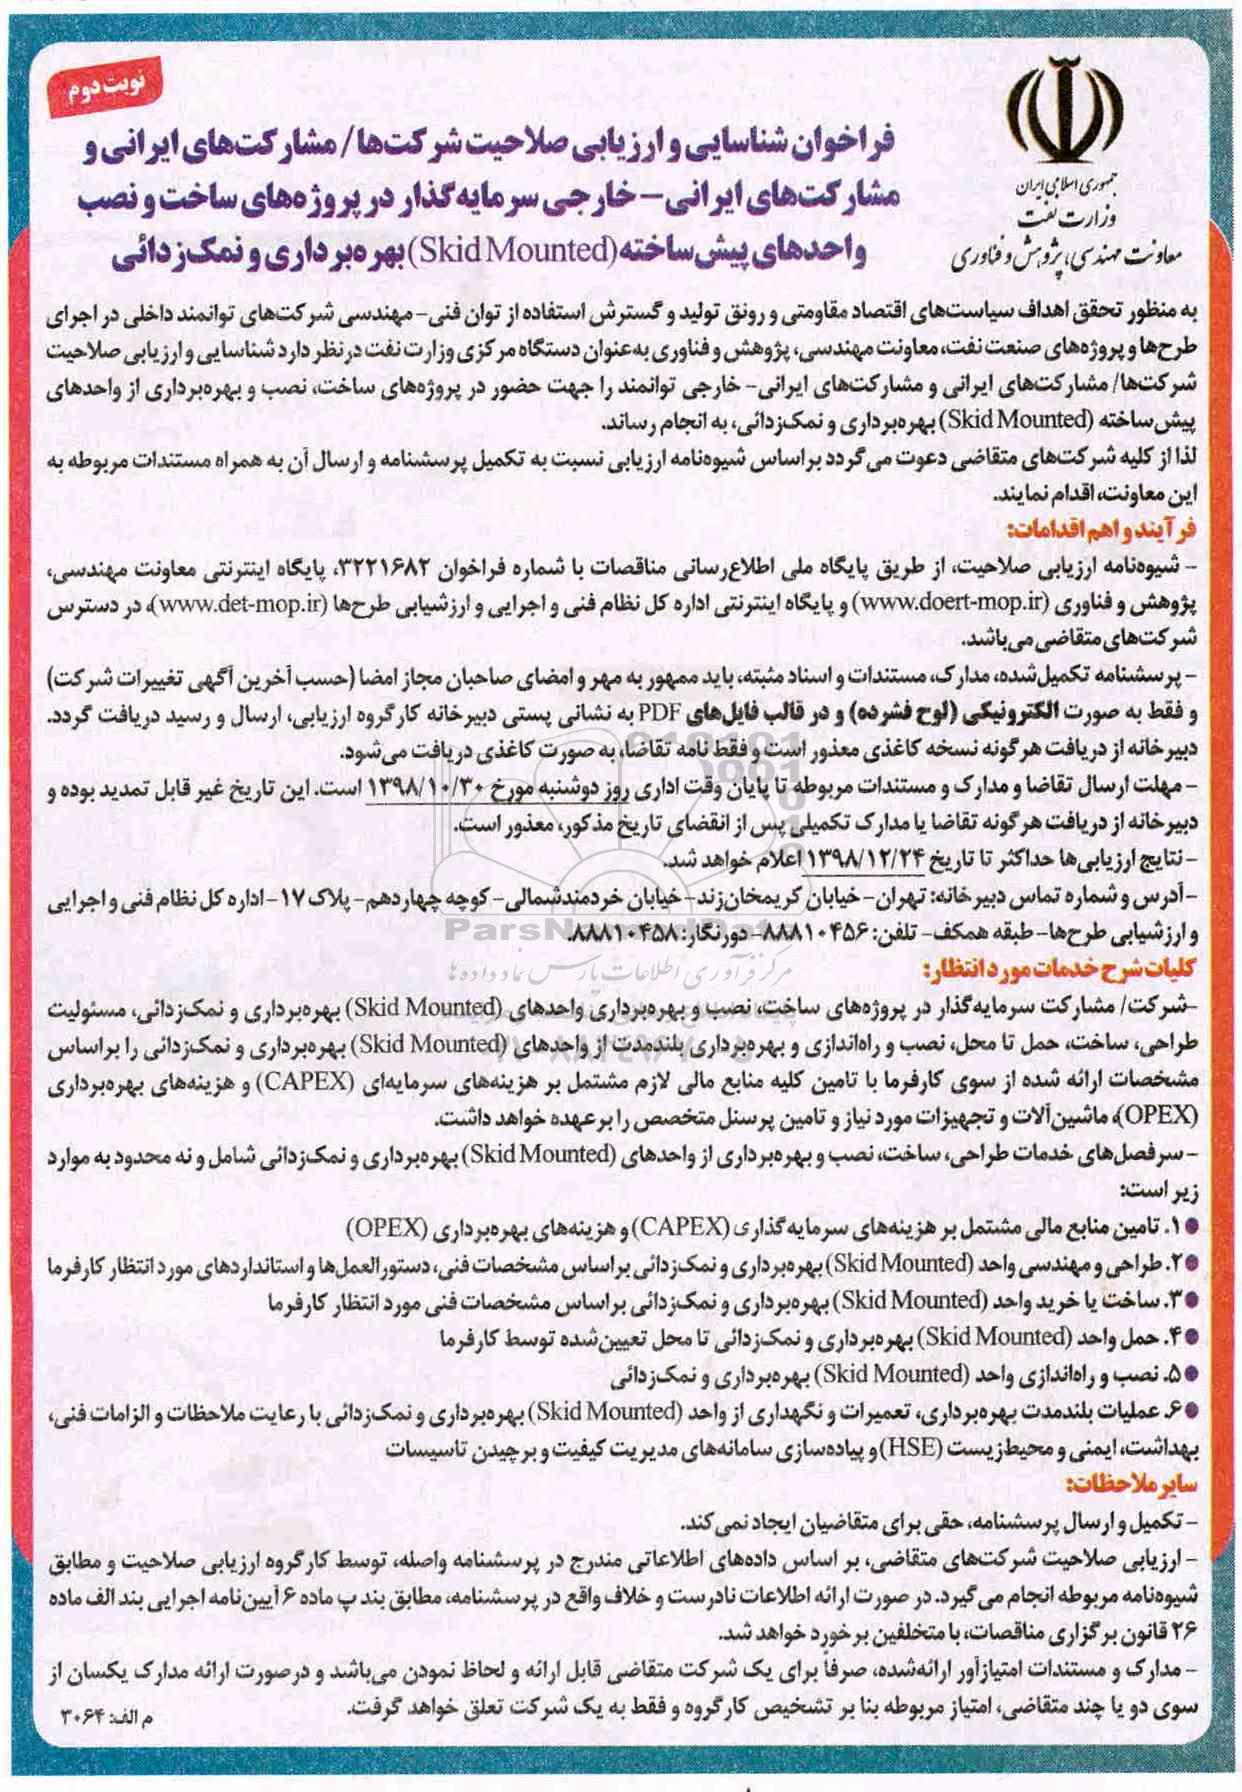 نوبت دوم
جمهوری اسلامی ایران
وزارت نفت
معاونت مهندسی، پژوهش و فناوری
فراخوان شناسایی و ارزیابی صلاحیت شرکت‌ها/ مشارکت‌های ایرانی و
مشارکت‌های ایرانی – خارجی سرمایه‌گذار در پروژه‌های ساخت و نصب
واحدهای پیش‌ساخته (Skid Mounted) بهره‌برداری و نمک‌زدائی
به منظور تحقق اهداف سیاست‌های اقتصاد مقاومتی و رونق تولید و گسترش استفاده از توان فنی- مهندسی شرکت‌های توانمند داخلی در اجرای
طرح‌ها و پروژه‌های صنعت نفت، معاونت مهندسی، پژوهش و فناوری به‌عنوان دستگاه مرکزی وزارت نفت در نظر دارد شناسایی و ارزیابی صلاحیت
شرکت‌ها/ مشارکت‌های ایرانی و مشارکت‌های ایرانی- خارجی توانمند را جهت حضور در پروژه‌های ساخت، نصب و بهره‌برداری از واحدهای
پیش‌ساخته (Skid Mounted) بهره‌برداری و نمک‌زدائی، به انجام رساند.
لذا از کلیه شرکت‌های متقاضی دعوت می‌گردد براساس شیوه‌نامه ارزیابی نسبت به تکمیل پرسشنامه و ارسال آن به همراه مستندات مربوطه به
این معاونت، اقدام نمایند.
فرآیند و اهم اقدامات:
- شیوه‌نامه ارزیابی صلاحیت، از طریق پایگاه ملی اطلاع‌رسانی مناقصات با شماره فراخوان ۳۲۲۱۶۸۲، پایگاه اینترنتی معاونت مهندسی،
پژوهش و فناوری (www.doert-mop.ir) و پایگاه اینترنتی اداره کل نظام فنی و اجرایی و ارزشیابی طرح‌ها (www.det-mop.ir)، در دسترس
شرکت‌های متقاضی می‌باشد.
- پرسشنامه تکمیل‌شده، مدارک، مستندات و اسناد مثبته، باید ممهور به مهر و امضای صاحبان مجاز امضا (حسب آخرین آگهی تغییرات شرکت)
و فقط به صورت الکترونیکی (لوح فشرده) و در قالب فایل‌های PDF به نشانی پستی دبیرخانه کارگروه ارزیابی، ارسال و رسید دریافت گردد.
دبیرخانه از دریافت هرگونه نسخه کاغذی معذور است و فقط نامه تقاضا، به صورت کاغذی دریافت می‌شود.
- مهلت ارسال تقاضا و مدارک و مستندات مربوطه تا پایان وقت اداری روز دوشنبه مورخ ۱۳۹۸/۱۰/۳۰ است. این تاریخ غیر قابل تمدید بوده و
دبیرخانه از دریافت هرگونه تقاضا یا مدارک تکمیلی پس از انقضای تاریخ مذکور، معذور است.
- نتایج ارزیابی‌ها حداکثر تا تاریخ ۱۳۹۸/۱۲/۲۴ اعلام خواهد شد.
- آدرس و شماره تماس دبیرخانه: تهران- خیابان کریمخان‌زند- خیابان خردمندشمالی- کوچه چهاردهم- پلاک ۱۷- اداره کل نظام فنی و اجرایی
و ارزشیابی طرح‌ها- طبقه همکف- تلفن: ۸۸۸۱۰۴۵۶- دورنگار: ۸۸۸۱۰۴۵۸.
ParsNamadData
مرکز فرآوری اطلاعات پارس نماد داده‌ها
کلیات شرح خدمات مورد انتظار:
-شرکت/ مشارکت سرمایه‌گذار در پروژه‌های ساخت، نصب و بهره‌برداری واحدهای (Skid Mounted) بهره‌برداری و نمک‌زدائی، مسئولیت
طراحی، ساخت، حمل تا محل، نصب و راه‌اندازی و بهره‌برداری بلندمدت از واحدهای (Skid Mounted) بهره‌برداری و نمک‌زدائی را براساس
مشخصات ارائه شده از سوی کارفرما با تامین کلیه منابع مالی لازم مشتمل بر هزینه‌های سرمایه‌ای (CAPEX) و هزینه‌های بهره‌برداری
(OPEX)، ماشین‌آلات و تجهیزات مورد نیاز و تامین پرسنل متخصص را برعهده خواهد داشت.
- سرفصل‌های خدمات طراحی، ساخت، نصب و بهره‌برداری از واحدهای (Skid Mounted) بهره‌برداری و نمک‌زدائی شامل و نه محدود به موارد
زیر است:
● ۱. تامین منابع مالی مشتمل بر هزینه‌های سرمایه‌گذاری (CAPEX) و هزینه‌های بهره‌برداری (OPEX)
● ۲. طراحی و مهندسی واحد (Skid Mounted) بهره‌برداری و نمک‌زدائی براساس مشخصات فنی، دستورالعمل‌ها و استانداردهای مورد انتظار کارفرما
● ۳. ساخت یا خرید واحد (Skid Mounted) بهره‌برداری و نمک‌زدائی براساس مشخصات فنی مورد انتظار کارفرما
● ۴. حمل واحد (Skid Mounted) بهره‌برداری و نمک‌زدائی تا محل تعیین‌شده توسط کارفرما
● ۵. نصب و راه‌اندازی واحد (Skid Mounted) بهره‌برداری و نمک‌زدائی
● ۶. عملیات بلندمدت بهره‌برداری، تعمیرات و نگهداری از واحد (Skid Mounted) بهره‌برداری و نمک‌زدائی با رعایت ملاحظات و الزامات فنی،
بهداشت، ایمنی و محیط‌زیست (HSE) و پیاده‌سازی سامانه‌های مدیریت کیفیت و برچیدن تاسیسات
سایر ملاحظات:
- تکمیل و ارسال پرسشنامه، حقی برای متقاضیان ایجاد نمی‌کند.
- ارزیابی صلاحیت شرکت‌های متقاضی، بر اساس داده‌های اطلاعاتی مندرج در پرسشنامه واصله، توسط کارگروه ارزیابی صلاحیت و مطابق
شیوه‌نامه مربوطه انجام می‌گیرد. در صورت ارائه اطلاعات نادرست و خلاف واقع در پرسشنامه، مطابق بند پ ماده ۶ آیین‌نامه اجرایی بند الف ماده
۲۶ قانون برگزاری مناقصات، با متخلفین برخورد خواهد شد.
- مدارک و مستندات امتیازآور ارائه‌شده، صرفاً برای یک شرکت متقاضی قابل ارائه و لحاظ نمودن می‌باشد و درصورت ارائه مدارک یکسان از
سوی دو یا چند متقاضی، امتیاز مربوطه بنا بر تشخیص کارگروه و فقط به یک شرکت تعلق خواهد گرفت.
م الف: ۳۰۶۴